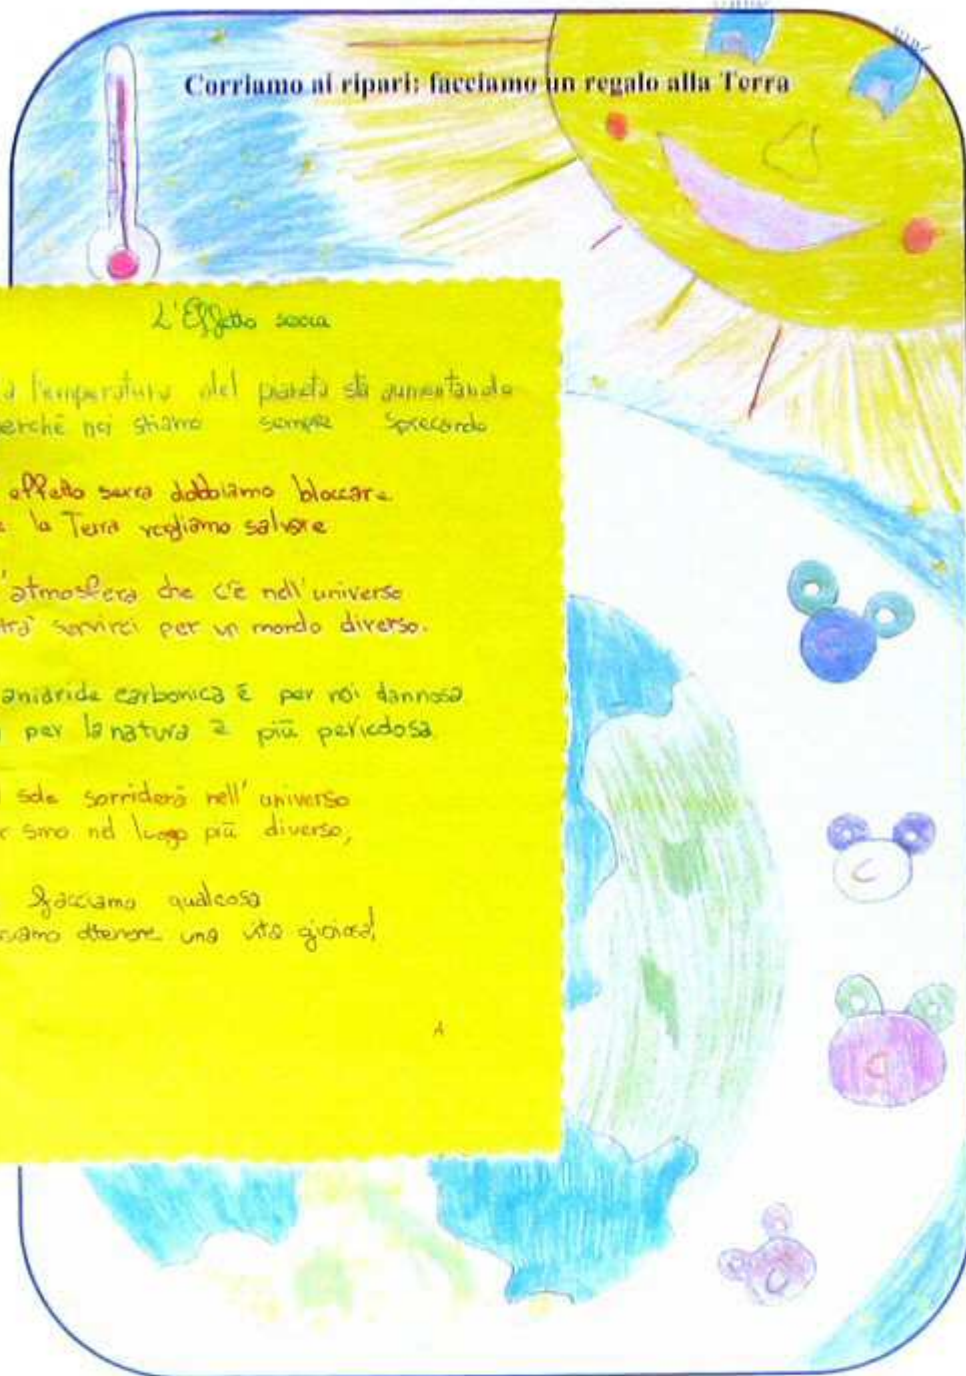 Corriamo ai ripari: facciamo un regalo alla Terra
L'Effetto serra
a temperatura del pianeta sta aumentando
erché noi stiamo sempre sprecando
effetto serra dobbiamo bloccare
e la Terra vogliamo salvare
'atmosfera che c'è nell'universo
trà servirci per un mondo diverso.
anidride carbonica è per noi dannosa
per la natura è più pericolosa
sole sorriderà nell'universo
r sino nel luogo più diverso,
facciamo qualcosa
siamo ottenere una vita gioiosa!
A
C
C
C
C